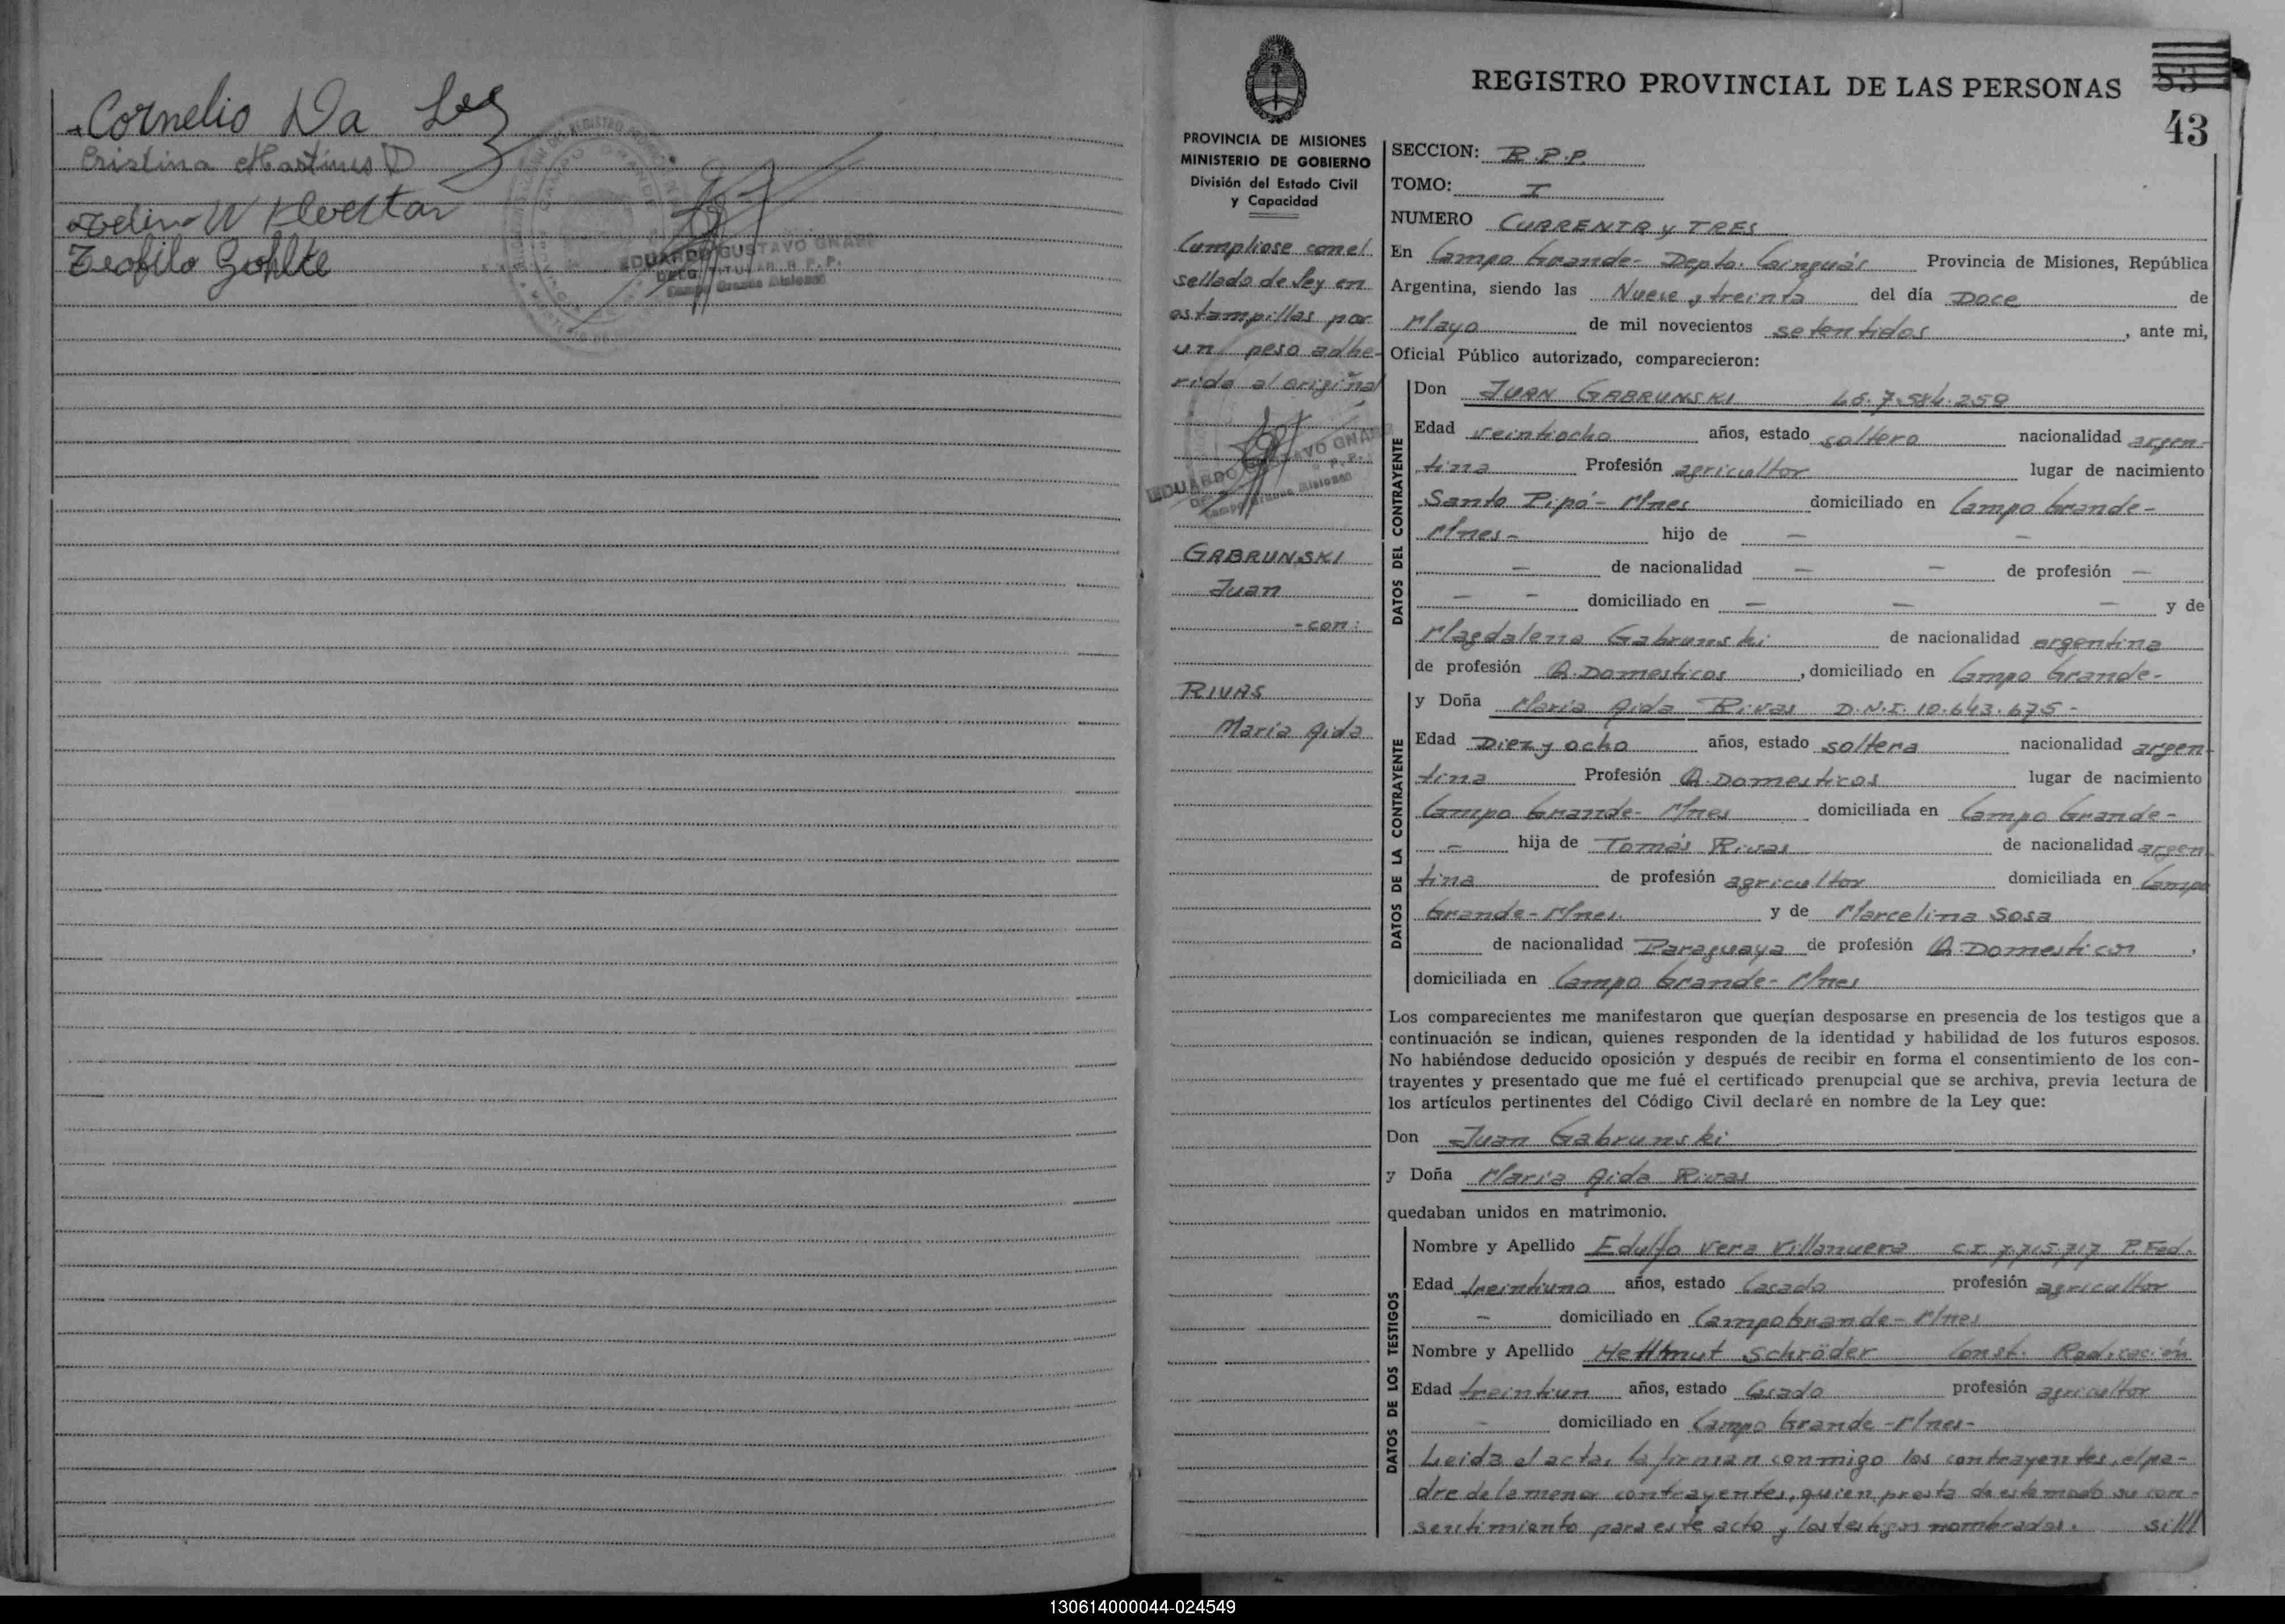 Cornelio Da
Cristina Martines D
Teofilo Gohlke
EDUARDO GUSTAVO GNASS
DELG. TITULAR R.P.P.
Campo Grande Misiones
REGISTRO PROVINCIAL DE LAS PERSONAS
53
43
PROVINCIA DE MISIONES
MINISTERIO DE GOBIERNO
División del Estado Civil
y Capacidad
Cumpliose con el
sellado de ley en
estampillas por
un peso adhe-
rida al original
EDUARDO GUSTAVO GNASS
R.P.P.
Campo Grande Misiones
GABRUNSKI
Juan
-con:
RIVAS
María Aida
SECCION: R.P.P.
TOMO: I
NUMERO CURRENTA y TRES
En Campo Grande- Depto. Cainguás Provincia de Misiones, República
Argentina, siendo las Nueve y treinta del día Doce de
Mayo de mil novecientos setentidos, ante mi,
Oficial Público autorizado, comparecieron:
DATOS DEL CONTRAYENTE
Don JUAN GABRUNSKI L.E. 7.584.259
Edad veintiocho años, estado soltero nacionalidad argen-
tina Profesión agricultor lugar de nacimiento
Santo Pipó- Mnes domiciliado en Campo Grande-
Mnes- hijo de — —
— de nacionalidad — — de profesión —
— — domiciliado en — — — y de
Magdalena Gabrunski de nacionalidad argentina
de profesión Q. Domesticos, domiciliado en Campo Grande-
DATOS DE LA CONTRAYENTE
y Doña María Aida Rivas D.N.I. 10.643.675-
Edad Diez y ocho años, estado soltera nacionalidad argen-
tina Profesión Q. Domesticos lugar de nacimiento
Campo Grande- Mnes domiciliada en Campo Grande-
— hija de Tomás Rivas de nacionalidad argen-
tina de profesión agricultor domiciliada en Campo
Grande-Mnes. y de Marcelina Sosa
de nacionalidad Paraguaya de profesión Q. Domesticos,
domiciliada en Campo Grande- Mnes
Los comparecientes me manifestaron que querían desposarse en presencia de los testigos que a
continuación se indican, quienes responden de la identidad y habilidad de los futuros esposos.
No habiéndose deducido oposición y después de recibir en forma el consentimiento de los con-
trayentes y presentado que me fué el certificado prenupcial que se archiva, previa lectura de
los artículos pertinentes del Código Civil declaré en nombre de la Ley que:
Don Juan Gabrunski
y Doña María Aida Rivas
quedaban unidos en matrimonio.
DATOS DE LOS TESTIGOS
Nombre y Apellido Edulfo Vera Villanueva C.I. 7.715.717 P. Fed.
Edad treintiuno años, estado Casado profesión agricultor
— domiciliado en Campo Grande- Mnes
Nombre y Apellido Hellmut Schröder Const. Radicación
Edad treintiun años, estado Casado profesión agricultor
- domiciliado en Campo Grande -Mnes-
Leida el acta, la firman conmigo los contrayentes, el pa-
dre de la menor contrayentes, quien presta de este modo su con-
sentimiento para este acto y los testigos nombrados. si///
130614000044-024549